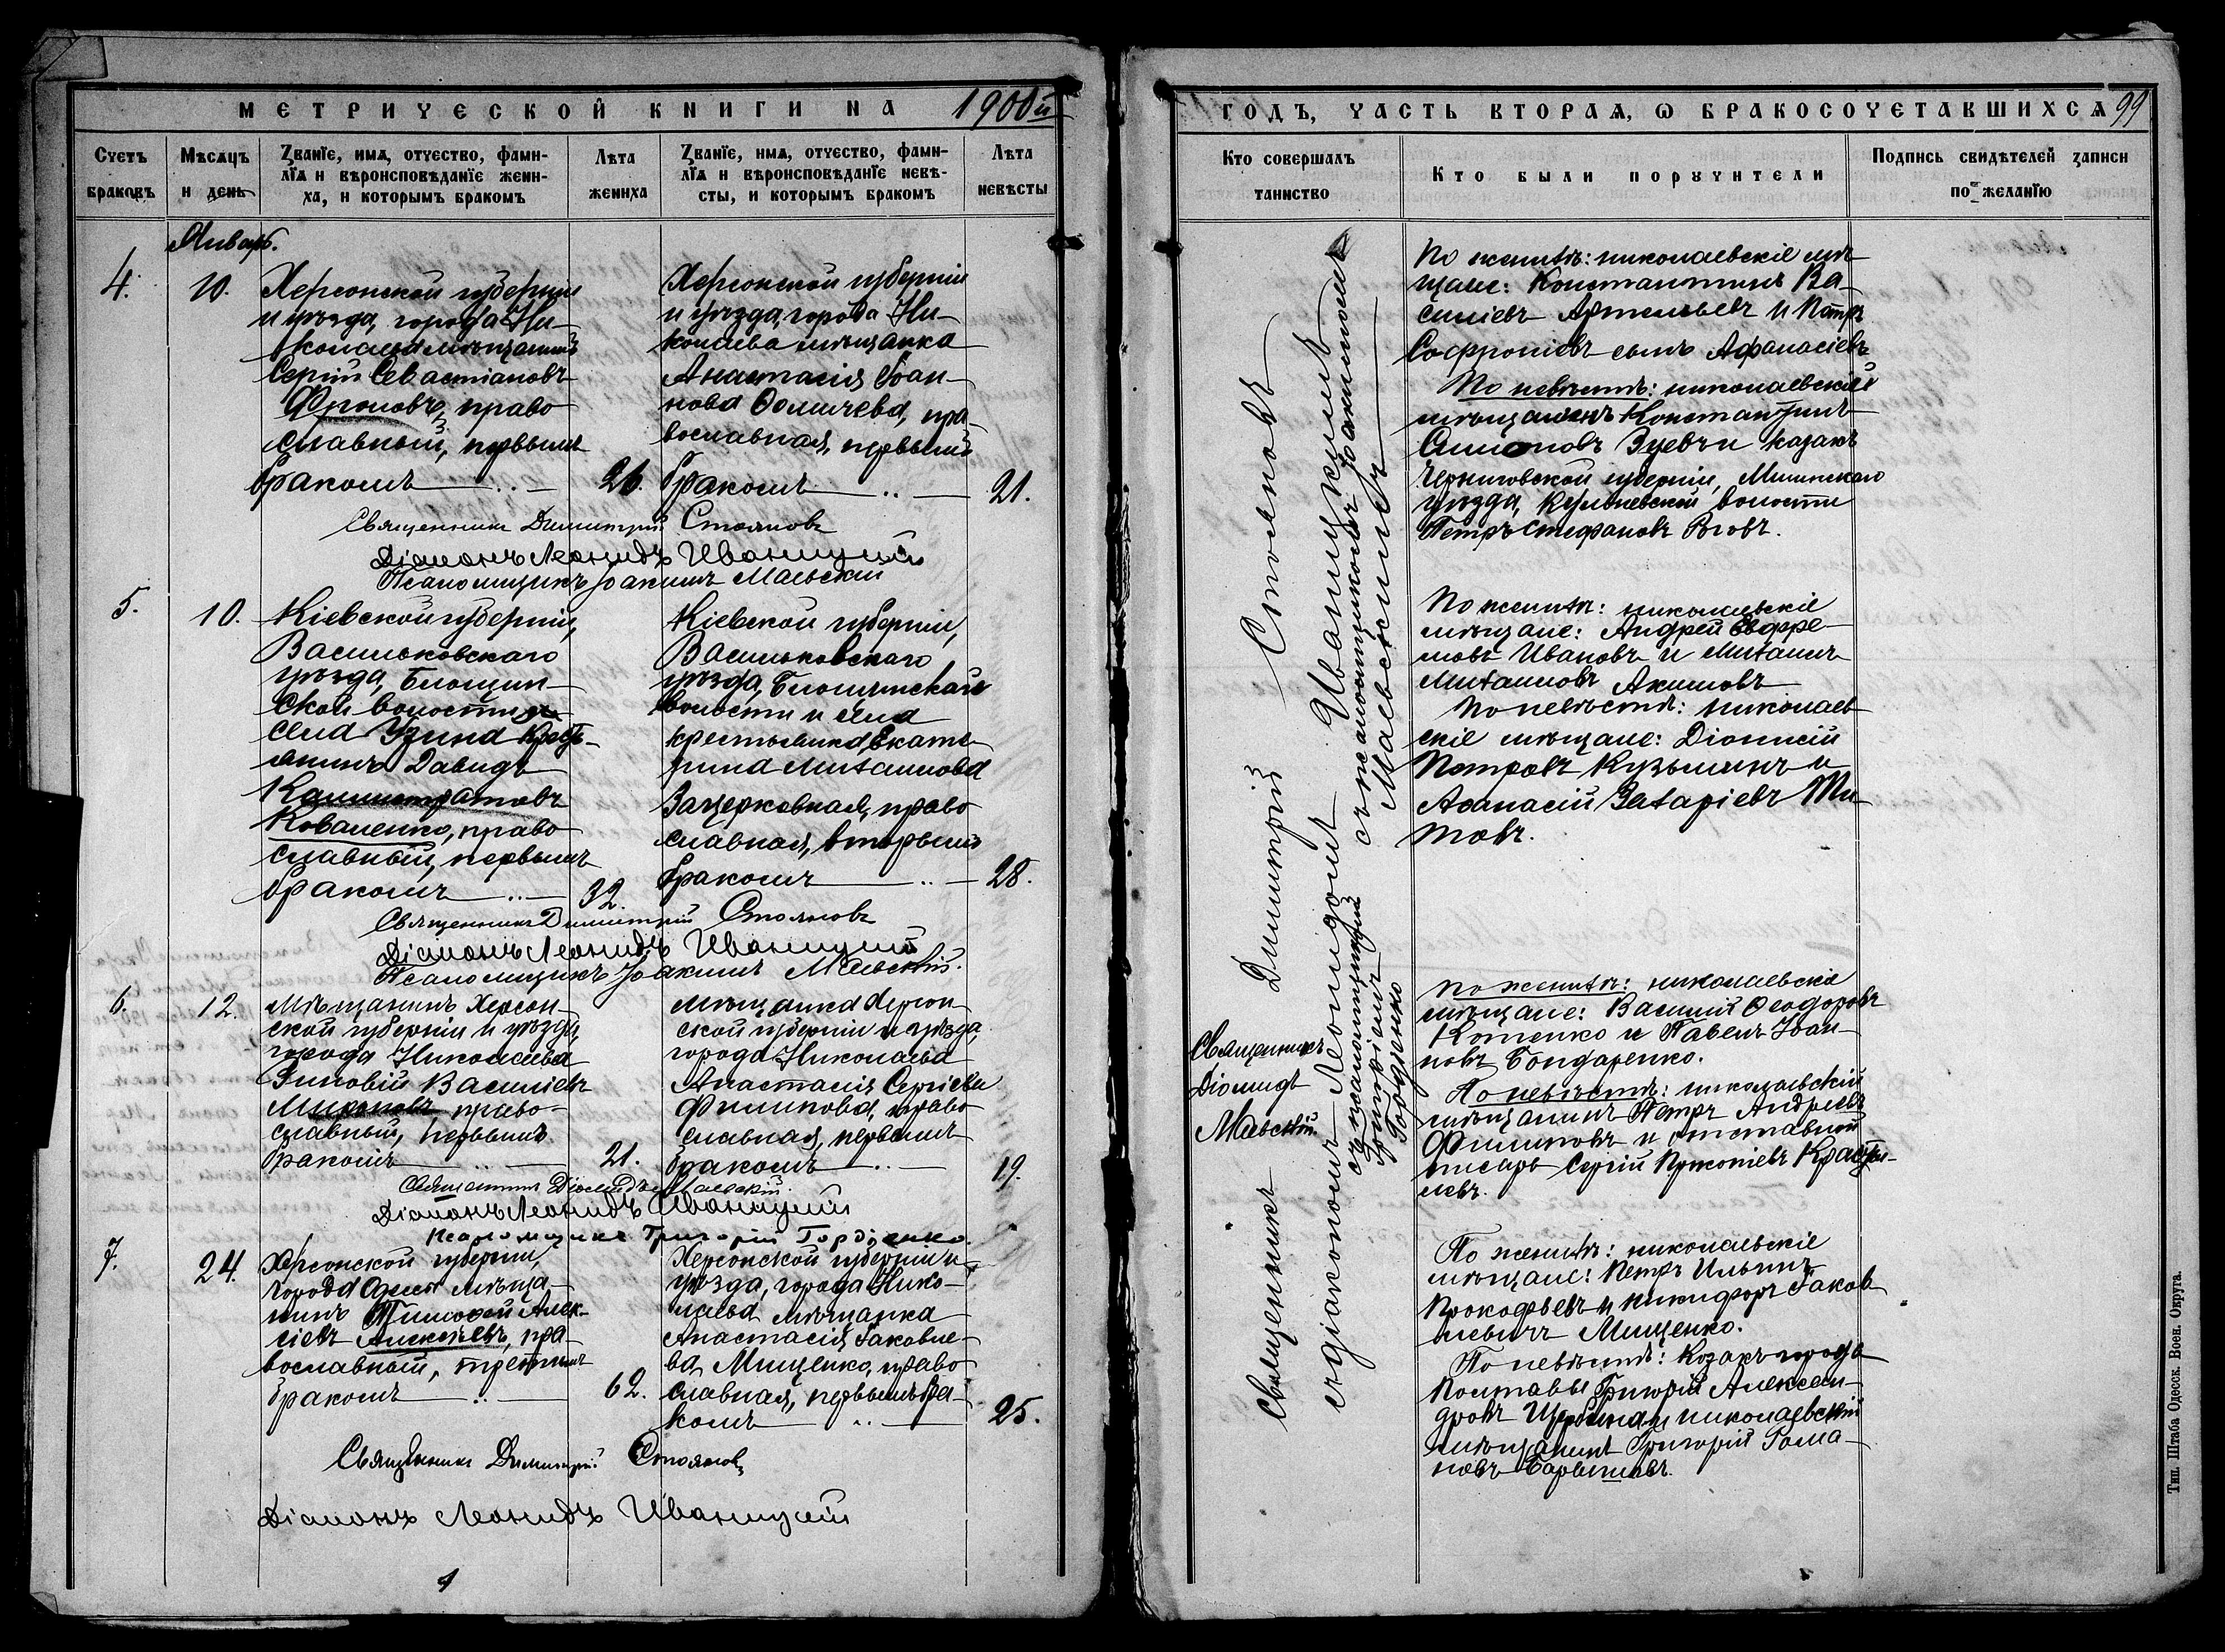 МЕТРИЧЕСКОЙ КНИГИ НА 1900й
Счетъ браковъ
Мѣсяцъ и день
Званіе, имя, отчество, фами-
лія и вѣроисповѣданіе жени-
ха, и которымъ бракомъ
Лѣта жениха
Званіе, имя, отчество, фами-
лія и вѣроисповѣданіе невѣ-
сты, и которымъ бракомъ
Лѣта невѣсты
Январь.
4.
10.
Херсонской губерніи
и уѣзда, города Ни-
колаева мѣщанинъ
Сергій Севастіановъ
Фроловъ, право
славный, первымъ
бракомъ
26.
Херсонской губерніи
и уѣзда, города Ни-
колаева мѣщанка
Анастасія Іоан-
нова Ѳомичева, пра-
вославная, первымъ
бракомъ
21.
Священникъ Димитрій Стояновъ
Діаконъ Леонидъ Иваницкій
Псаломщикъ Іоакимъ Маевскій
5.
10.
Кіевской губерніи,
Васильковскаго
уѣзда,
ской волости и
села Узина кресть-
янинъ Давидъ
Каллистратовъ
Коваленко, право
славный, первымъ
бракомъ
32.
Кіевской губерніи,
Васильковскаго
уѣзда,
волости и села
крестьянка Екате-
рина Михаилова
Зацерковная, право
славная, вторымъ
бракомъ
28.
Священникъ Димитрій Стояновъ
Діаконъ Леонидъ Иваницкій
Псаломщикъ Іоакимъ Маевскій.
6.
12.
Мѣщанинъ Херсон-
ской губерніи и уѣзда,
города Николаева
Зиновій Василіевъ
Мироновъ, право-
славный, первымъ
бракомъ
21.
Мѣщанка Херсон-
ской губерніи и уѣзда,
города Николаева
Анастасія Сергіева
Филипова, право
славная, первымъ
бракомъ
19.
Священникъ Діомидъ Маевскій.
Діаконъ Леонидъ Иваницкій
Псаломщикъ Григорій Гордіенко.
7.
24.
Херсонской губерніи,
города Одессы мѣща-
нинъ Тимоѳей Алек-
сіевъ Алексѣевъ, пра-
вославный, третьимъ
бракомъ
62.
Херсонской губерніи и
уѣзда, города Нико-
лаева мѣщанка
Анастасія Іаковле-
ва Мищенко, право
славная, первымъ бра-
комъ
25.
Священникъ Димитрій Стояновъ
Діаконъ Леонидъ Иваницкій
ГОДЪ, ЧАСТЬ ВТОРАЯ, Ѡ БРАКОСОЧЕТАВШИХСЯ 99
Кто совершалъ
таинство
Кто были поручители
Подпись свидѣтелей записи
по желанію
Священникъ Димитрій Стояновъ
съ діакономъ Леонидомъ Иваницкимъ
съ псаломщикомъ Іоакимомъ
Маевскимъ
Священникъ
Діомидъ
Маевскій
съ псаломщикомъ
Григоріемъ
Гордіенко
По женихѣ: николаевскіе мѣ-
щане: Константинъ Ва-
силіевъ Артемьевъ и Петръ
Софроніевъ сынъ Афанасіевъ
По невѣстѣ: николаевскій
мѣщанинъ Константинъ
Симоновъ Зуевъ и казакъ
Черниговской губерніи,
уѣзда, волости
Петръ Стефановъ
По женихѣ: николаевскіе
мѣщане: Андрей Евфре-
мовъ Ивановъ и Михаилъ
Михаиловъ Акимовъ
По невѣстѣ: николаев-
скіе мѣщане: Діонисій
Петровъ Кузьминъ и
Аѳанасій Захаріевъ Ти-
товъ.
По женихѣ: николаевскіе
мѣщане: Василій Ѳеодоровъ
Котенко и Павелъ Іоан-
новъ Бондаренко.
По невѣстѣ: николаевскій
мѣщанинъ Петръ Андреевъ
Филиповъ и отставной
писарь Сергій Прокопіевъ
По женихѣ: николаевскіе
мѣщане: Петръ Ильинъ
Прокофьевъ и Никифоръ Іаков-
левичъ Мищенко.
По невѣстѣ: Козакъ города
Полтавы Григорій Алексан-
дровъ Щербина и николаевскій
мѣщанинъ Григорій Рома-
новъ
Тип. Штаба Одесск. Воен. Округа.